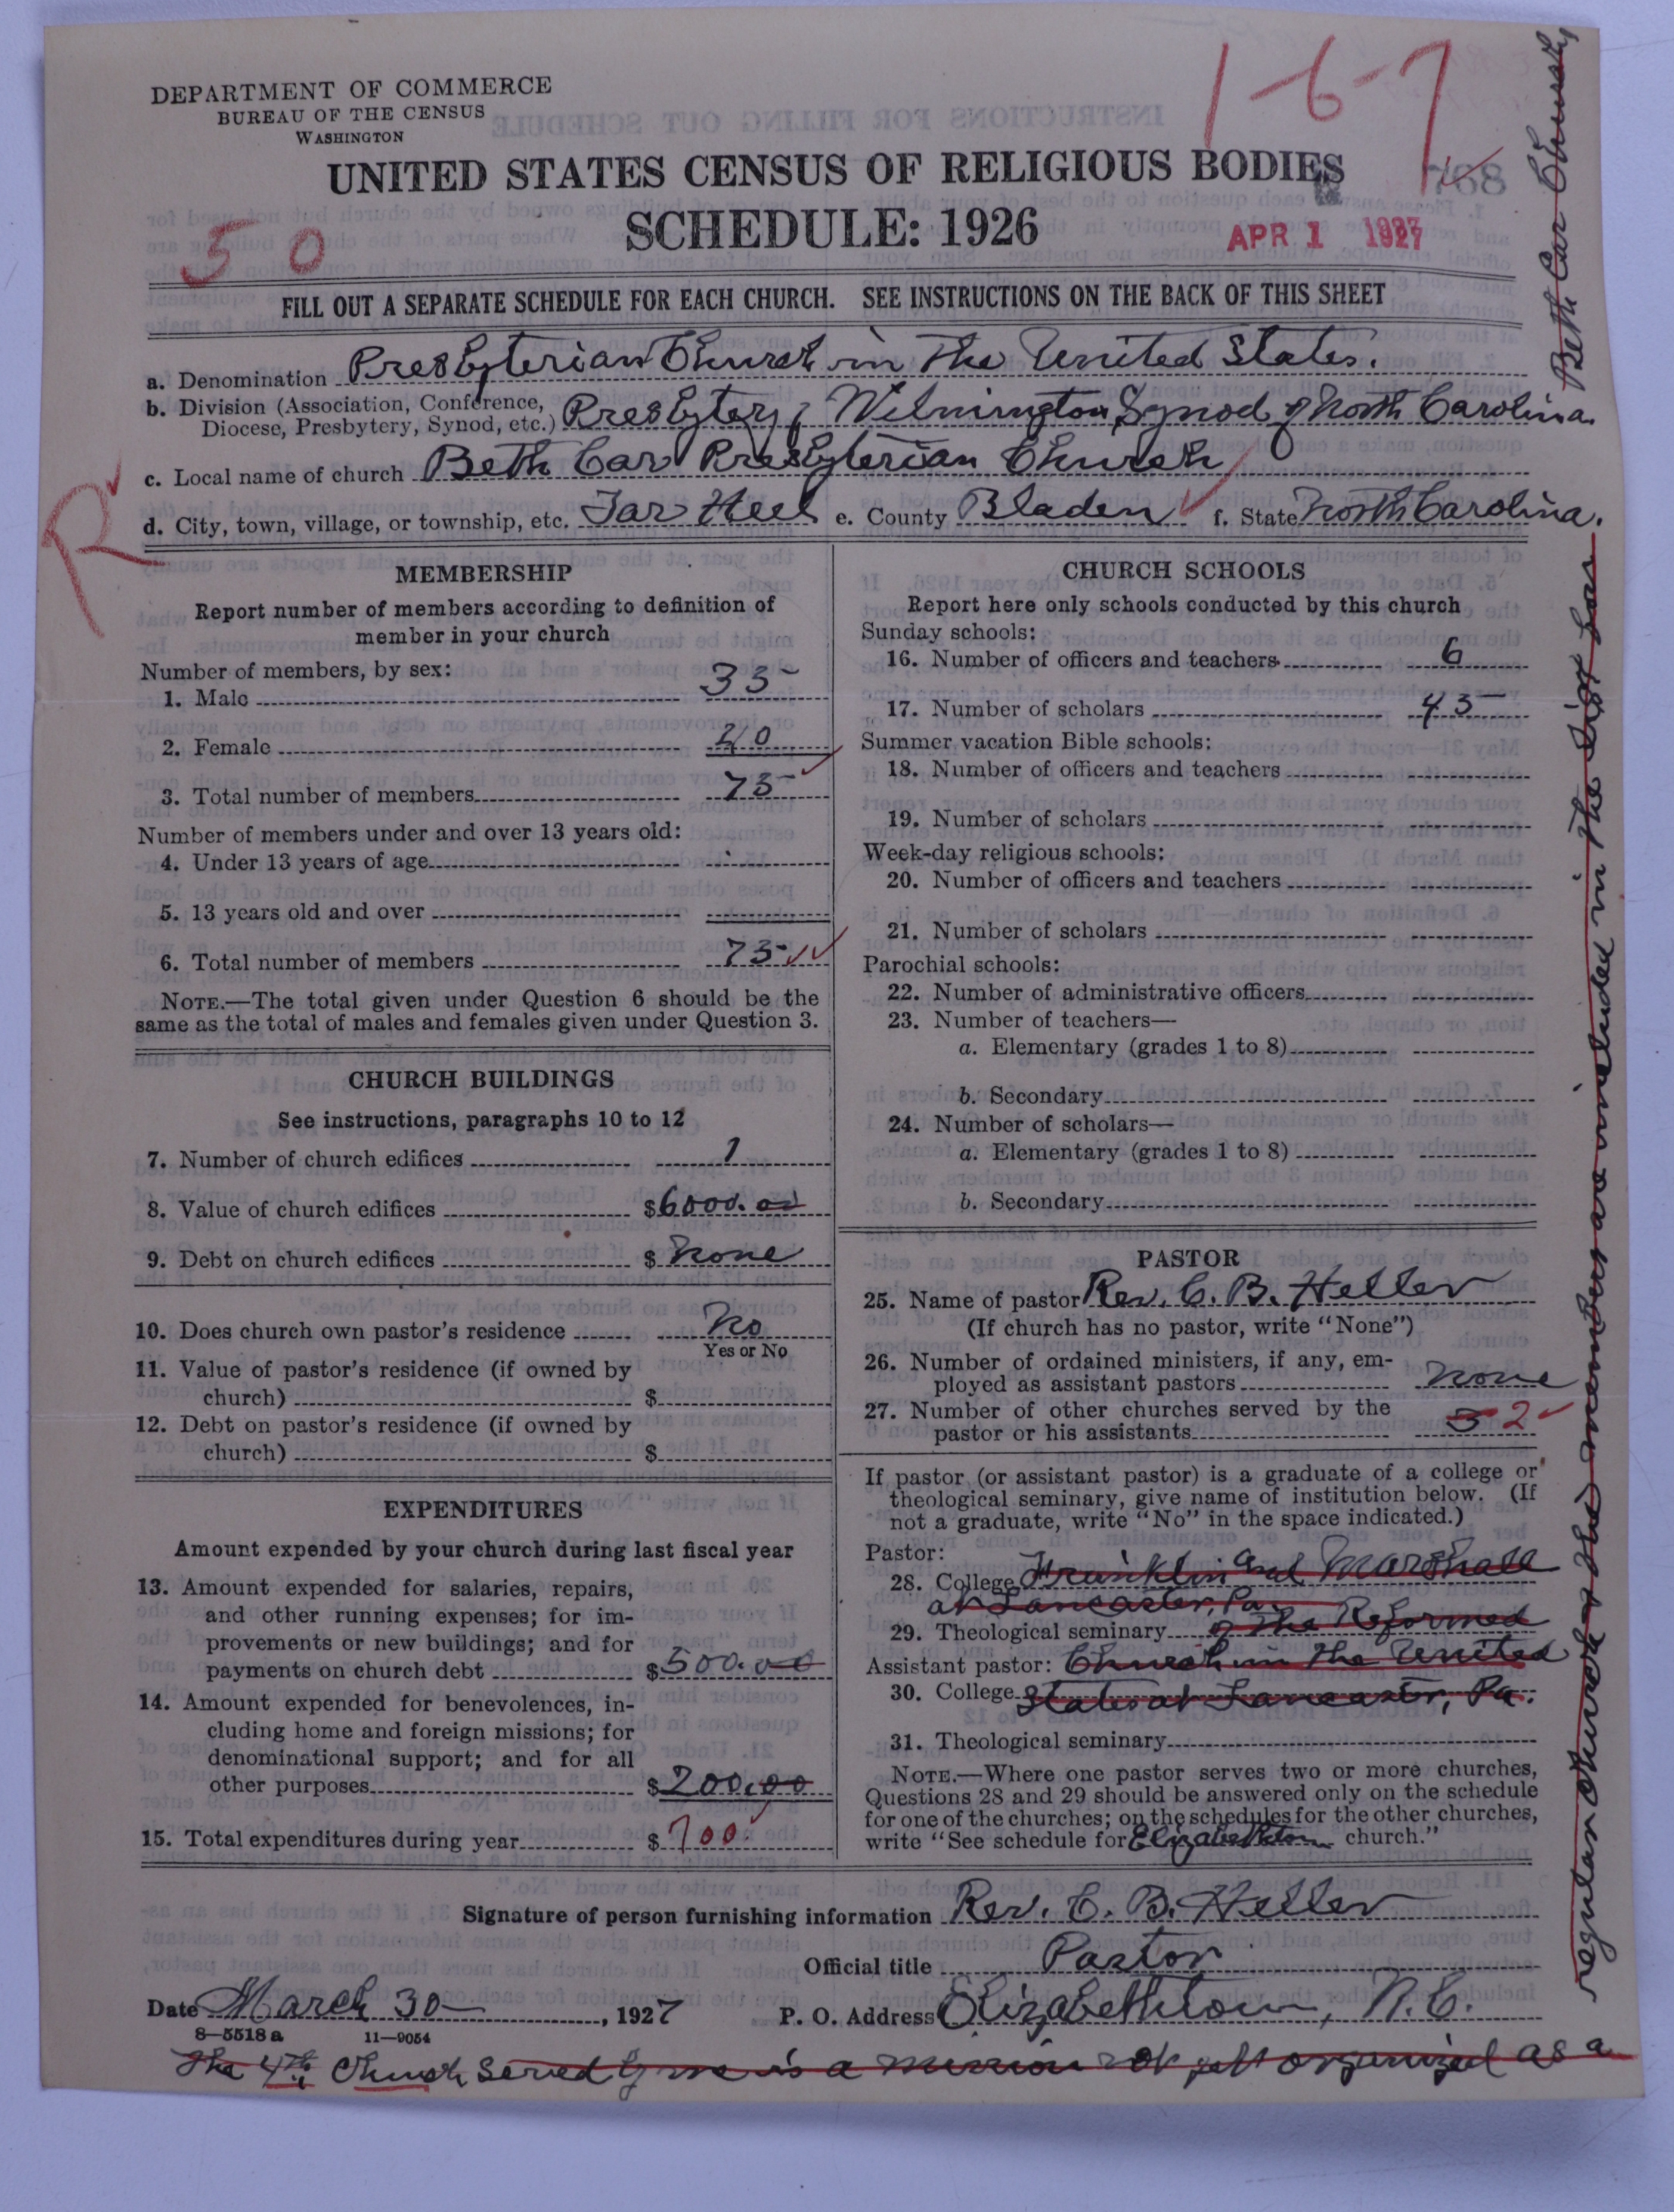 DEPARTMENT OF COMMERCE
BUREAU OF THE CENSUS
WASHINGTON
1-6-7
768
UNITED STATES CENSUS OF RELIGIOUS BODIES
SCHEDULE: 1926
50
APR 1 1927
FILL OUT A SEPARATE SCHEDULE FOR EACH CHURCH. SEE INSTRUCTIONS ON THE BACK OF THIS SHEET
a. Denomination Presbyterian Church in the United States.
b. Division (Association, Conference, Diocese, Presbytery, Synod, etc.) Presbytery of Wilmington, Synod of North Carolina.
c. Local name of church Beth Car Presbyterian Church
d. City, town, village, or township, etc. Tar Heel e. County Bladen f. State North Carolina.
R
MEMBERSHIP
Report number of members according to definition of
member in your church
Number of members, by sex:
1. Male 35
2. Female 40
3. Total number of members 75
Number of members under and over 13 years old:
4. Under 13 years of age
5. 13 years old and over
6. Total number of members 75
NOTE.—The total given under Question 6 should be the
same as the total of males and females given under Question 3.
CHURCH BUILDINGS
See instructions, paragraphs 10 to 12
7. Number of church edifices 1
8. Value of church edifices $6000.00
9. Debt on church edifices $ None
10. Does church own pastor's residence No
Yes or No
11. Value of pastor's residence (if owned by
church) $
12. Debt on pastor's residence (if owned by
church) $
EXPENDITURES
Amount expended by your church during last fiscal year
13. Amount expended for salaries, repairs,
and other running expenses; for im-
provements or new buildings; and for
payments on church debt $500.00
14. Amount expended for benevolences, in-
cluding home and foreign missions; for
denominational support; and for all
other purposes $200.00
15. Total expenditures during year $700.
CHURCH SCHOOLS
Report here only schools conducted by this church
Sunday schools:
16. Number of officers and teachers 6
17. Number of scholars 45
Summer vacation Bible schools:
18. Number of officers and teachers
19. Number of scholars
Week-day religious schools:
20. Number of officers and teachers
21. Number of scholars
Parochial schools:
22. Number of administrative officers
23. Number of teachers—
a. Elementary (grades 1 to 8)
b. Secondary
24. Number of scholars—
a. Elementary (grades 1 to 8)
b. Secondary
PASTOR
25. Name of pastor Rev. C. B. Heller
(If church has no pastor, write "None")
26. Number of ordained ministers, if any, em-
ployed as assistant pastors None
27. Number of other churches served by the
pastor or his assistants 3 2
If pastor (or assistant pastor) is a graduate of a college or
theological seminary, give name of institution below. (If
not a graduate, write "No" in the space indicated.)
Pastor:
28. College Franklin and Marshall
at Lancaster, Pa.
29. Theological seminary of the Reformed
Assistant pastor: Church in the United
30. College States at Lancaster, Pa.
31. Theological seminary
NOTE.—Where one pastor serves two or more churches,
Questions 28 and 29 should be answered only on the schedule
for one of the churches; on the schedules for the other churches,
write "See schedule for Elizabethtown church."
Signature of person furnishing information Rev. C. B. Heller
Official title Pastor
Date March 30, 1927 P. O. Address Elizabethtown, N.C.
8—5518 a 11—9054
The 4th Church served by me is a mission not yet organized as a
regular church & the members are included in the list for
Beth Car Church